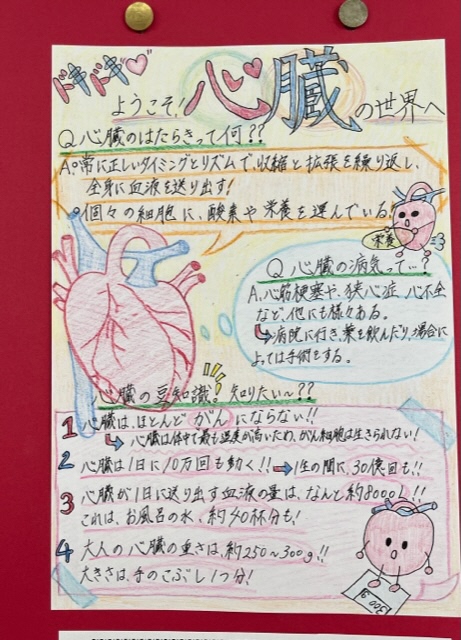 ドキドキ
ようこそ！心臓の世界へ
Q 心臓のはたらきって何??
A。常に正しいタイミングとリズムで、収縮と拡張を繰り返し、
全身に血液を送り出す!
。個々の細胞に、酸素や栄養を運んでいる!
栄養
Q 心臓の病気って…?
A.心筋梗塞や、狭心症、心不全
など、他にも様々ある。
↳病院に行き、薬を飲んだり、場合に
よっては手術をする。
心臓の豆知識! 知りたい～??
1 心臓は、ほとんど がん にならない!!
↳ 心臓は体中で最も温度が高いため、がん細胞は生きられない!
2 心臓は1日に10万回も動く!! →1生の間に、30億回も!!
3 心臓が1日に送り出す血液の量は、なんと約8000L!!
これは、お風呂の水、約40杯分も!
4 大人の心臓の重さは、約250～300g!!
大きさは、手のこぶし1つ分!
300g